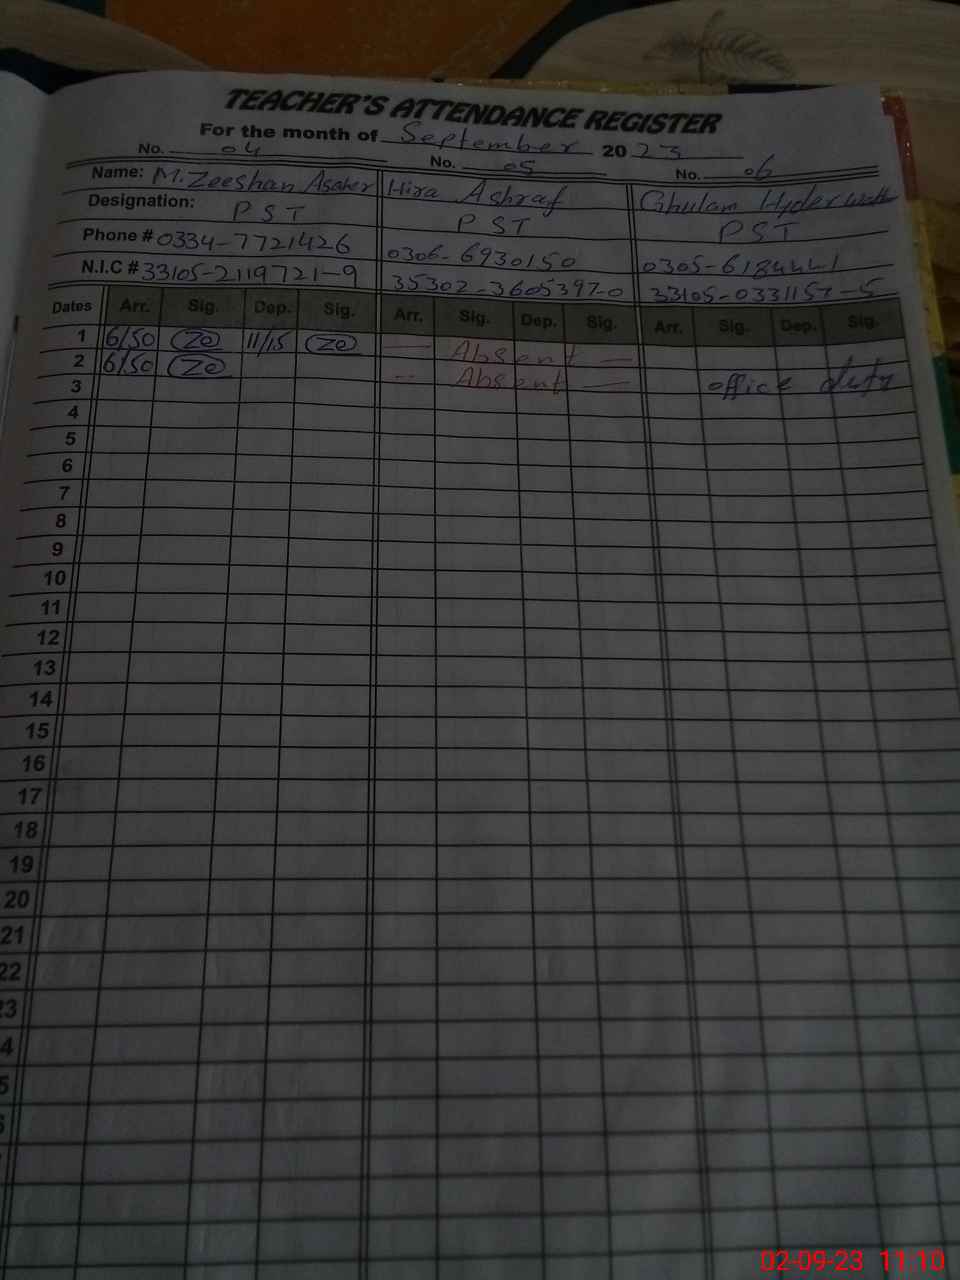 TEACHER'S ATTENDANCE REGISTER
For the month of September 2023
No. 04 No. 05 No. 06
Name: M.Zeeshan Asgher Hira Ashraf Ghulam Hyder
Designation: PST PST PST
Phone # 0334-7721426 0306-6930150 0305-6184441
N.I.C # 33105-2119721-9 35302-3605397-0 33105-0331157-5
Dates Arr. Sig. Dep. Sig. Arr. Sig. Dep. Sig. Arr. Sig. Dep. Sig.
1 6/50 Ze 11/15 Ze — Absent —
2 6/50 Ze -- Absent — office duty
3
4
5
6
7
8
9
10
11
12
13
14
15
16
17
18
19
20
21
22
23
4
5
02-09-23 11:10